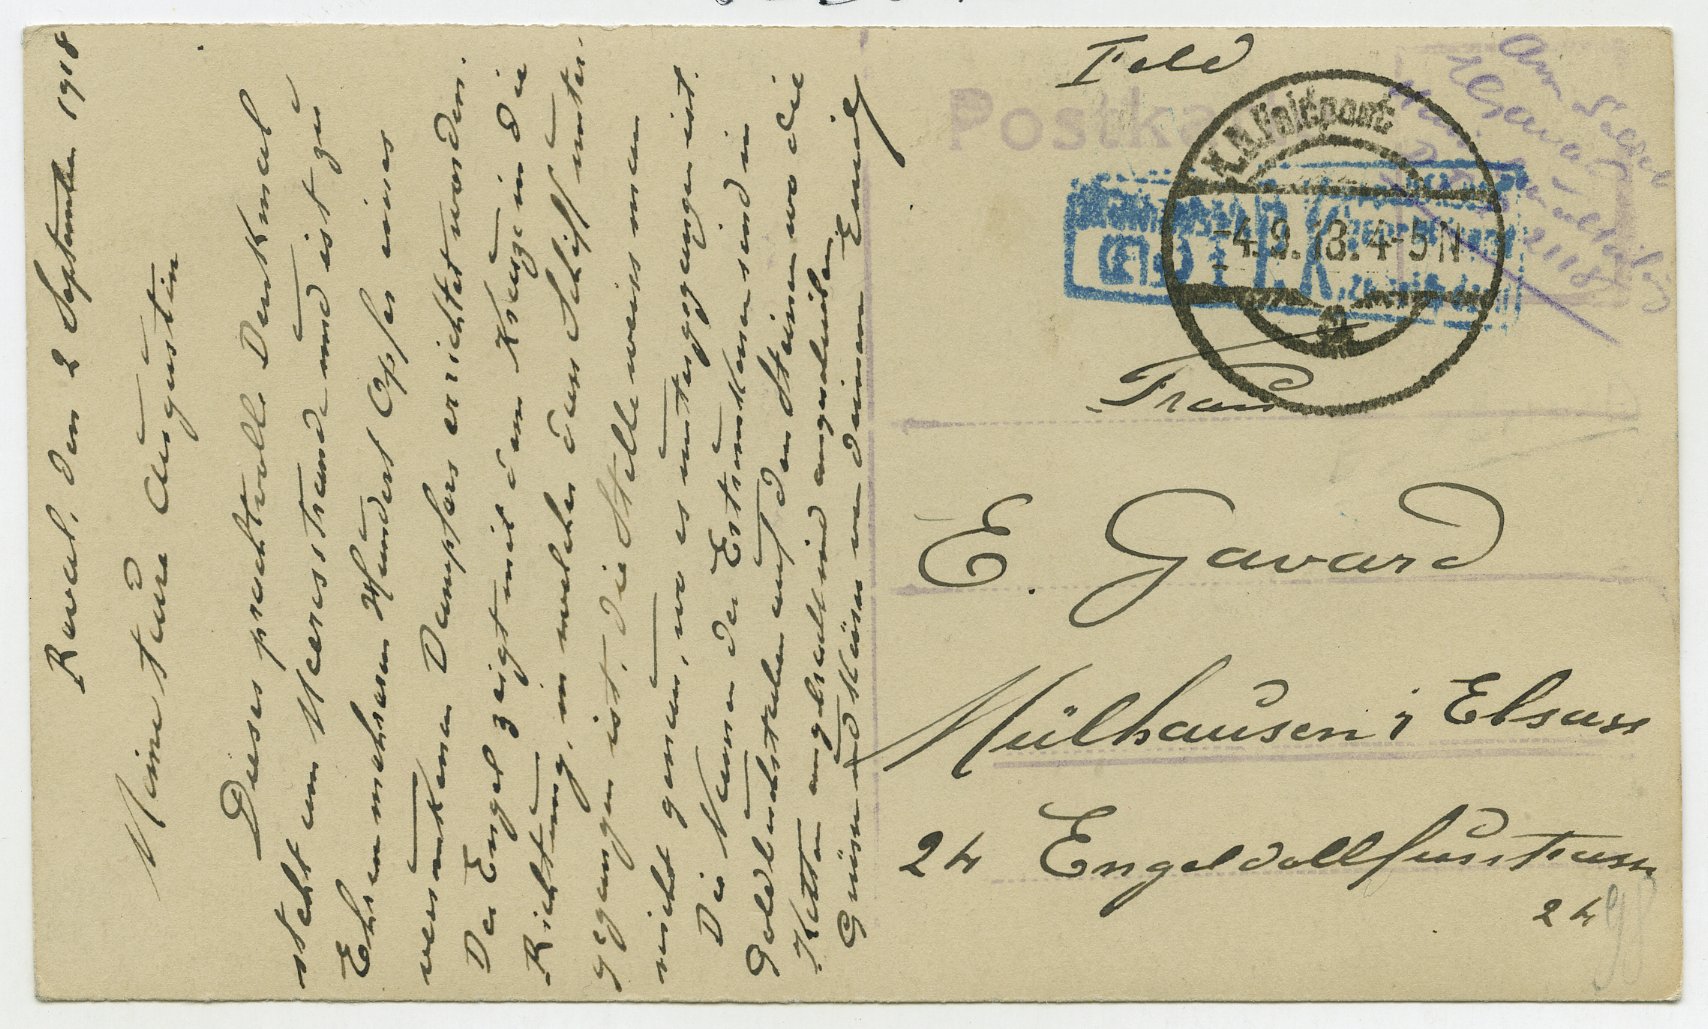 Reval, den 2 September 1918
Meine teure Augustin
Dieses prachtvolle Denkmal
steht am Meeresstrande und ist zu
Ehren mehreren Hundert Opfer eines
versunkenen Dampfers errichtet worden.
Der Engel zeigt mit dem Kreuze in die
Richtung, in welcher das Schiff unter-
gegangen ist. Die Stelle weiss man
nicht genau, wo es untergegangen ist.
Die Namen der Ertrunkenen sind in
Goldbuchstaben auf den Steinen wo die
Ketten angebracht sind angeschrieben
Grüsse und Küsse von deinem Emil
Feld
Postka
K.D.Feldpost
-4.9.18. 4-5N
Frau
E. Gavard
Mülhausen i Elsass
24 Engeldollfusstrasse
24
98